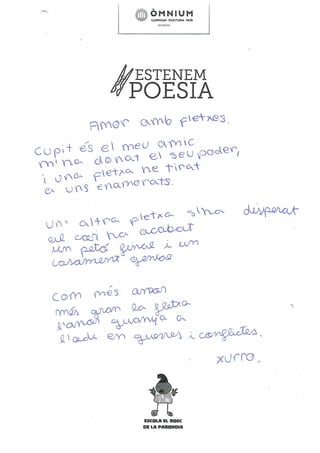 ÒMNIUM
LLENGUA CULTURA PAÍS
ESTENEM
POESIA
Amor amb fletxes.
Cupit és el meu amic
m'ha donat el seu poder,
i una fletxa he tirat
a uns enamorats.
Un altra fletxa s'ha disparat
el cor ha acabat
un petó genial i un
casament genial
Com més amor
més gran la fletxa
l'amor guanya a
l'odi en guerres i conflictes.
xurro.
ESCOLA EL BOSC
DE LA PABORDIA